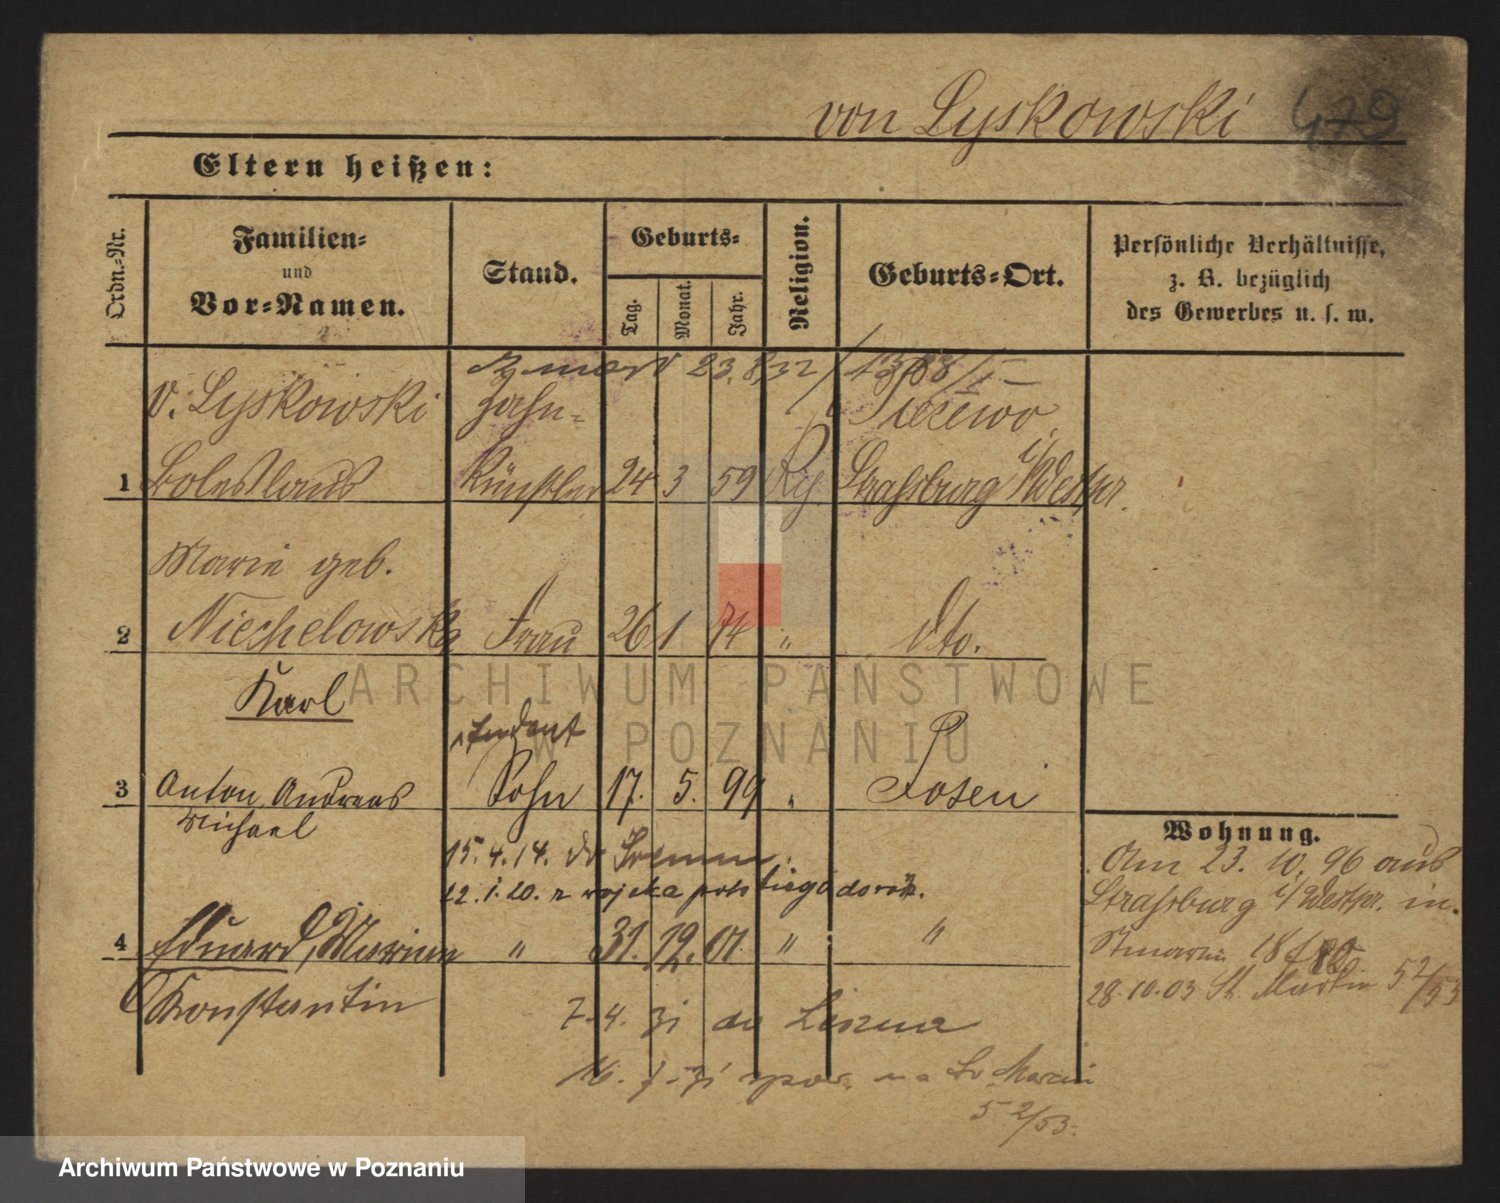 von Lyskowski 479
Eltern heißen:
Ordn.-Nr.
Familien-
und
Vor-Namen.
Stand.
Geburts-
Tag.
Monat.
Jahr.
Religion.
Geburts-Ort.
Persönliche Verhältnisse,
z. B. bezüglich
des Gewerbes u. s. w.
zmarł 23.8.32
v. Lyskowski Zahn-
1 Boleslaus Künstler 24 3 59 Strassburg i/Westpr.
Marie geb.
2 Frau 26 1 74 " dto.
Karl
student
3 Anton Andreas Sohn 17. 5. 99 " Posen
Michael
15.4.14.
12.1.20. z wojska
4 Eduard, Marian " 31. 12. 01. " "
Konstantin
7.4. 31 do
16. na Św Marcin
52/53.
Wohnung.
Am 23. 10. 96 aus
Strassburg i/Westpr. in.
Stmartin 18
28.10.03 St. Martin 52/53
ARCHIWUM PAŃSTWOWE
W POZNANIU
Archiwum Państwowe w Poznaniu